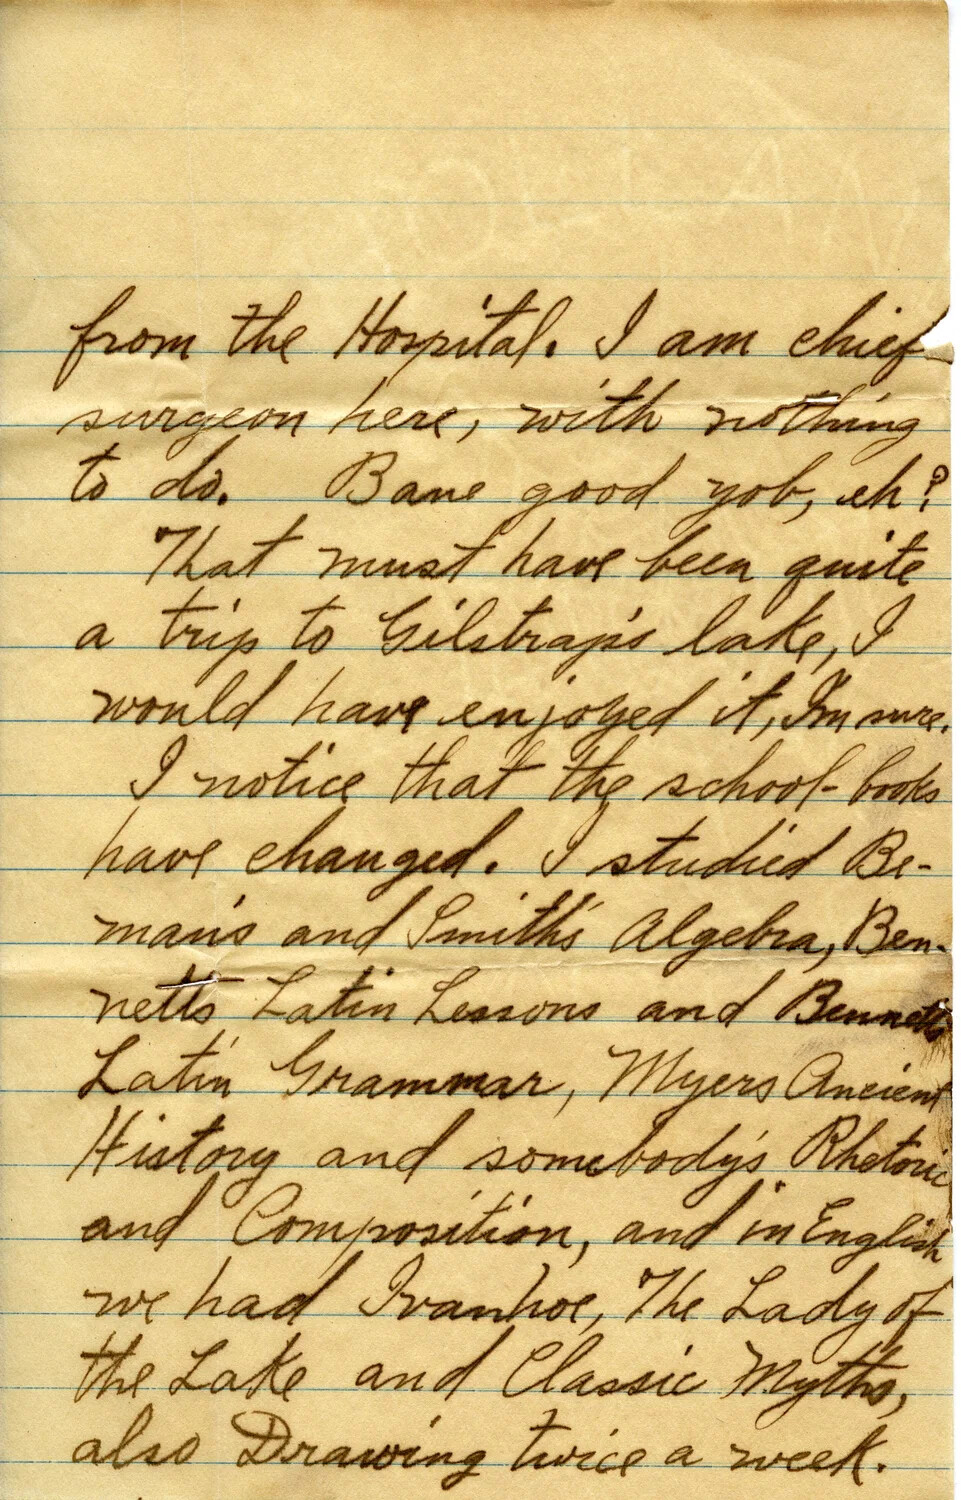 from the Hospital. I am chief
surgeon here, with nothing
to do. Bane good yob, eh?
That must have been quite
a trip to Gilstrap's lake, I
would have enjoyed it, I'm sure.
I notice that the school-books
have changed. I studied Be-
man's and Smith's Algebra, Ben-
netts Latin Lessons and Bennetts
Latin Grammar, Myers Ancient
History and somebody's Rhetoric
and Composition, and in English
we had Ivanhoe, The Lady of
the Lake and Classic Myths,
also Drawing twice a week.